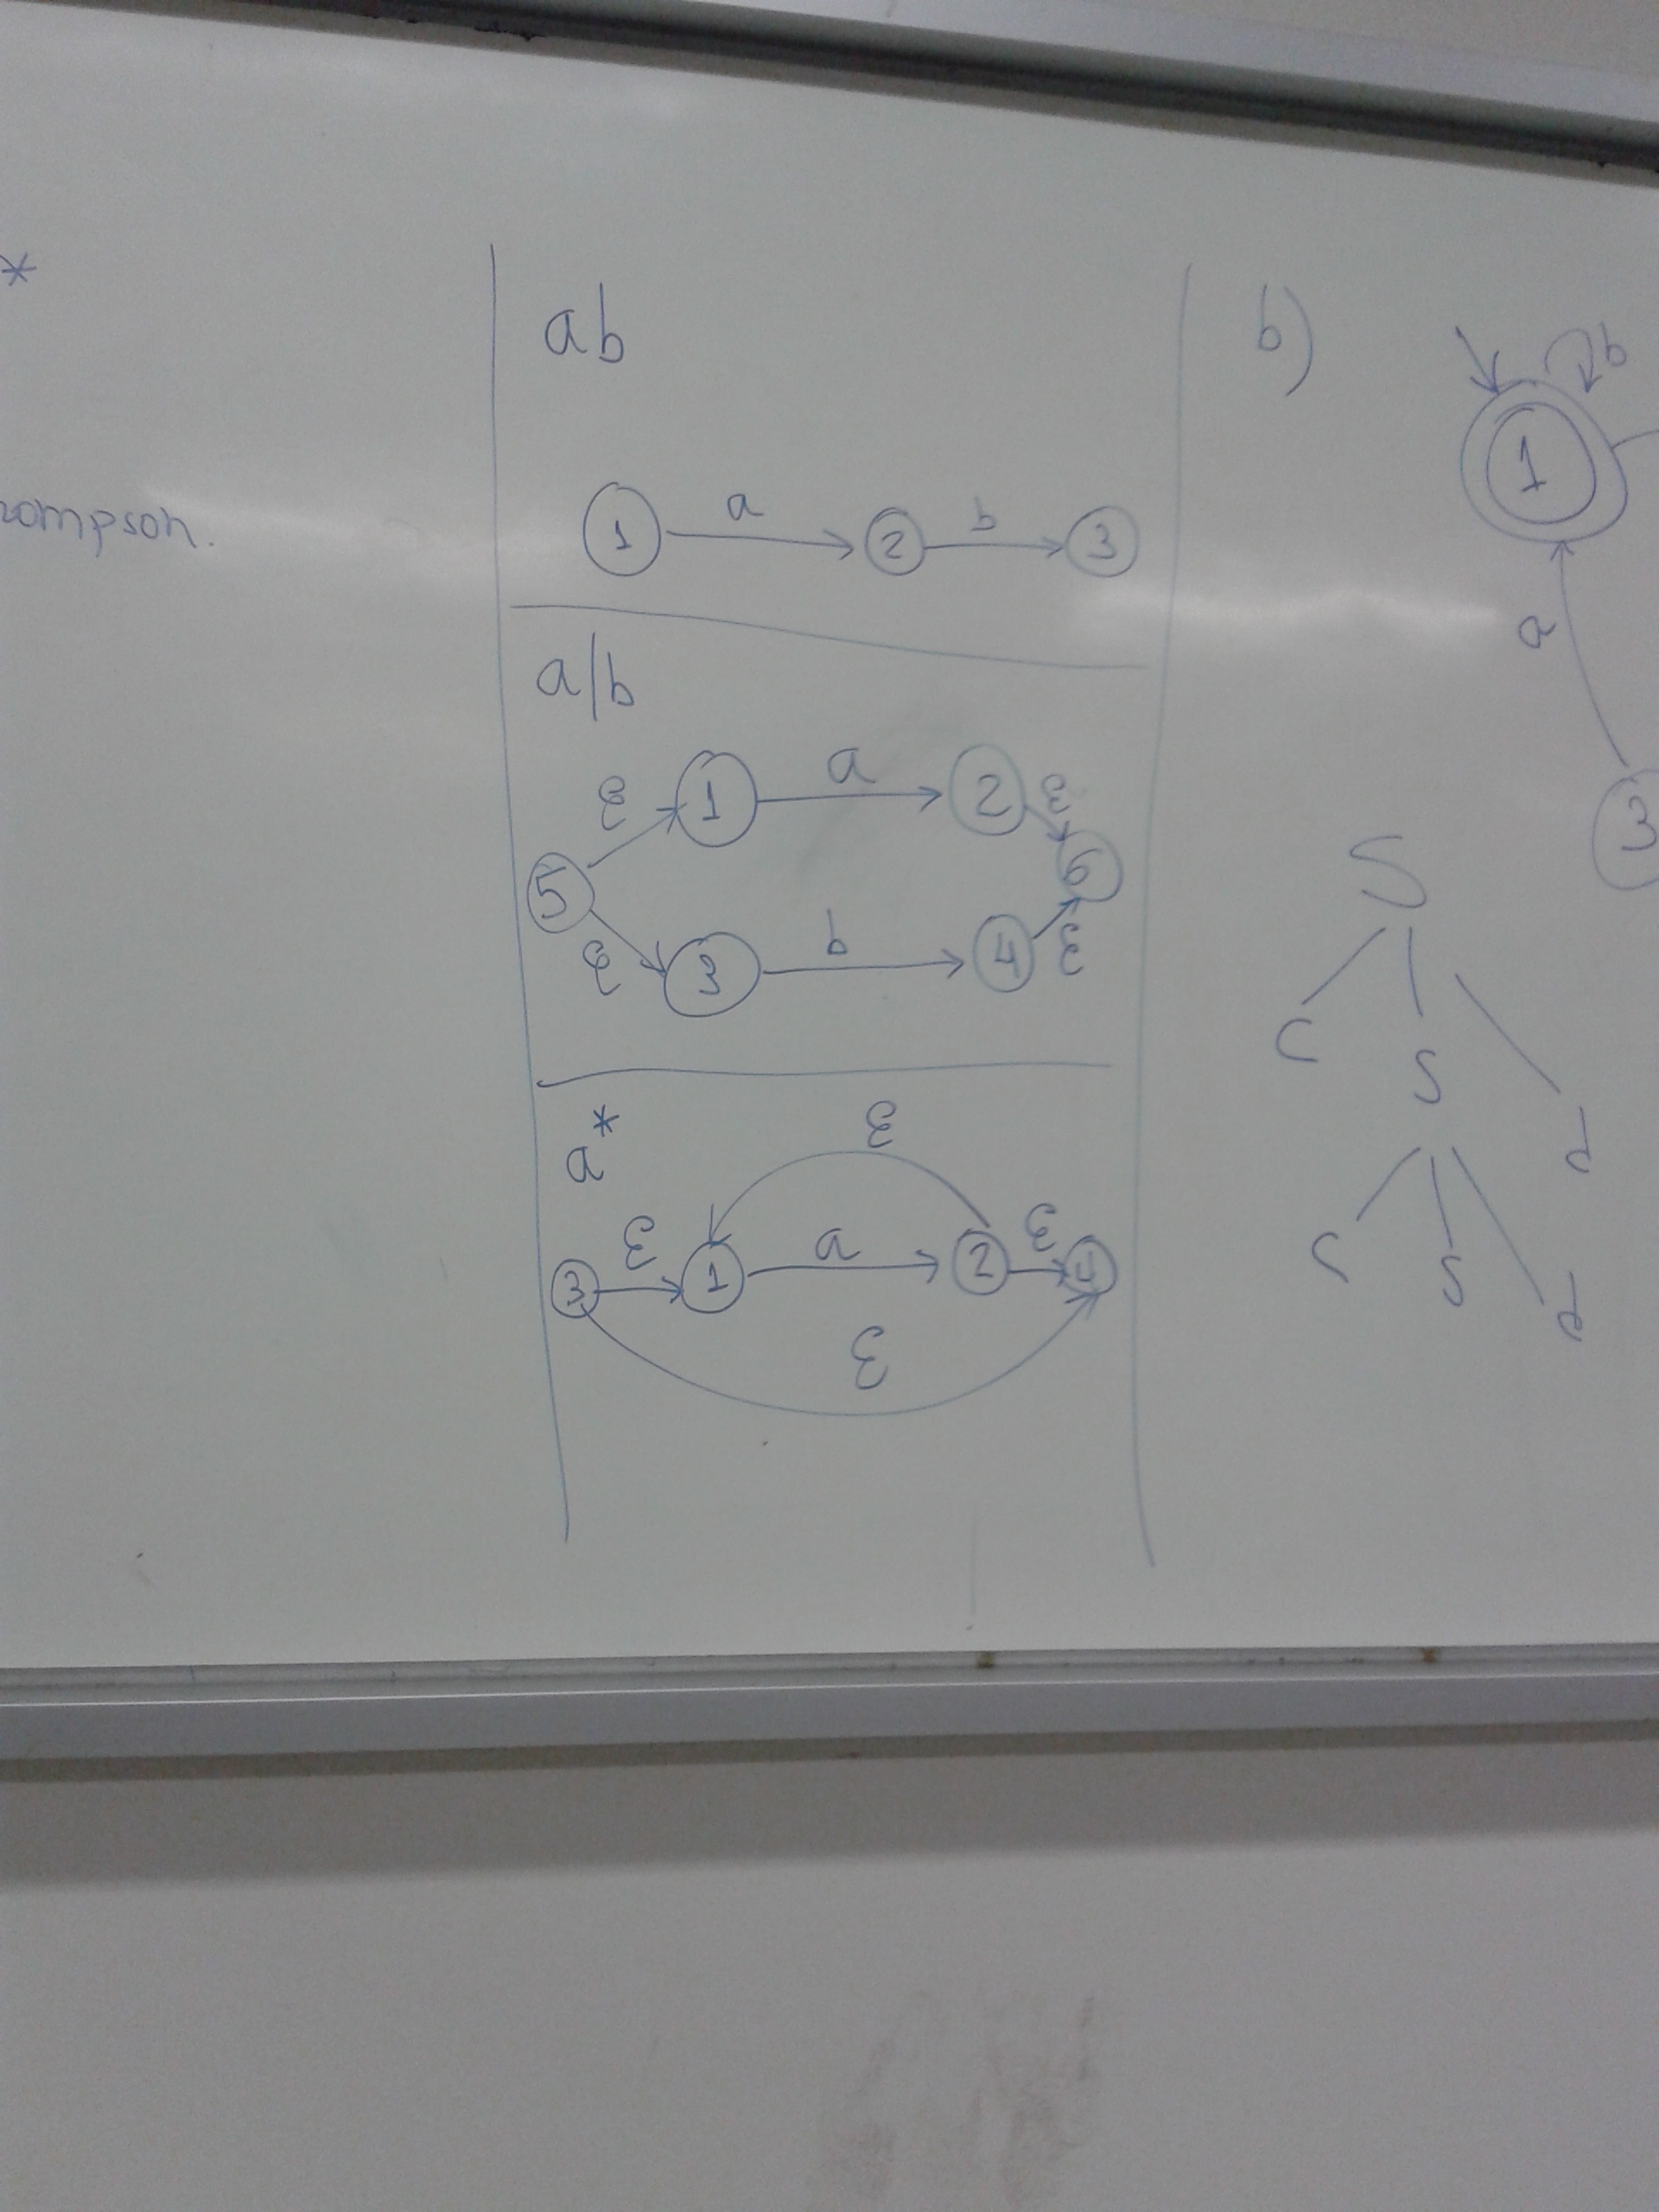 *
ompson.
ab
1 a 2 b 3
a|b
ε 1 a 2 ε
5 6
ε 3 b 4 ε
a*
ε
3 ε 1 a 2 ε 4
ε
b)
b
1
a
3
S
C S
C S